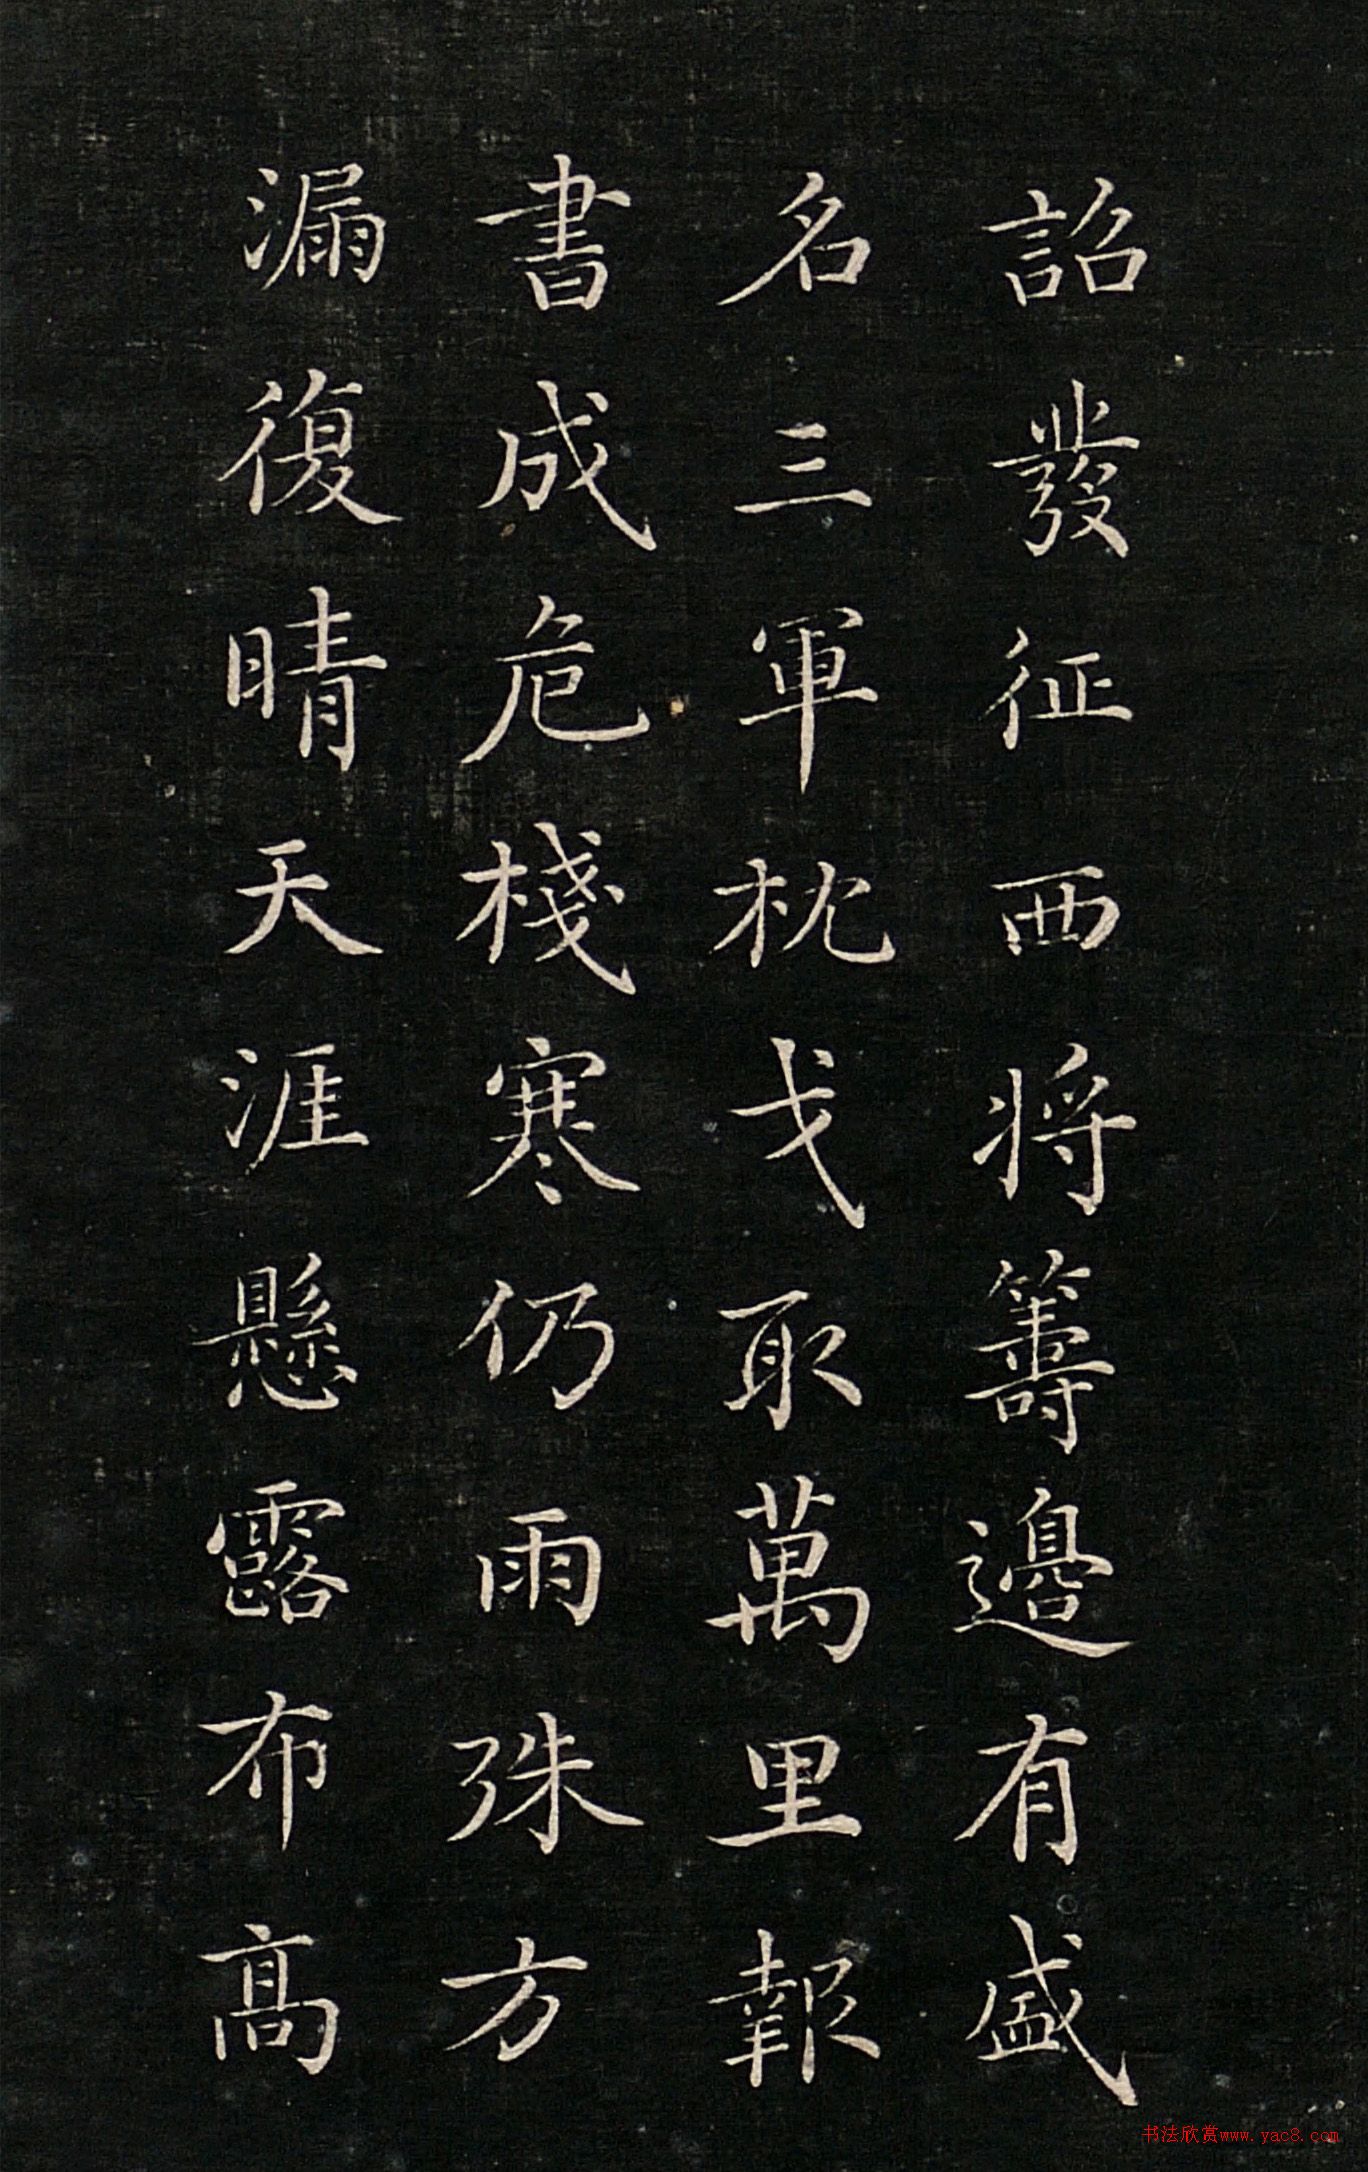 詔發征西將籌邊有盛
名三軍枕戈取萬里報
書成危棧寒仍雨殊方
漏復晴天涯懸露布高
书法欣赏www.yac8.com